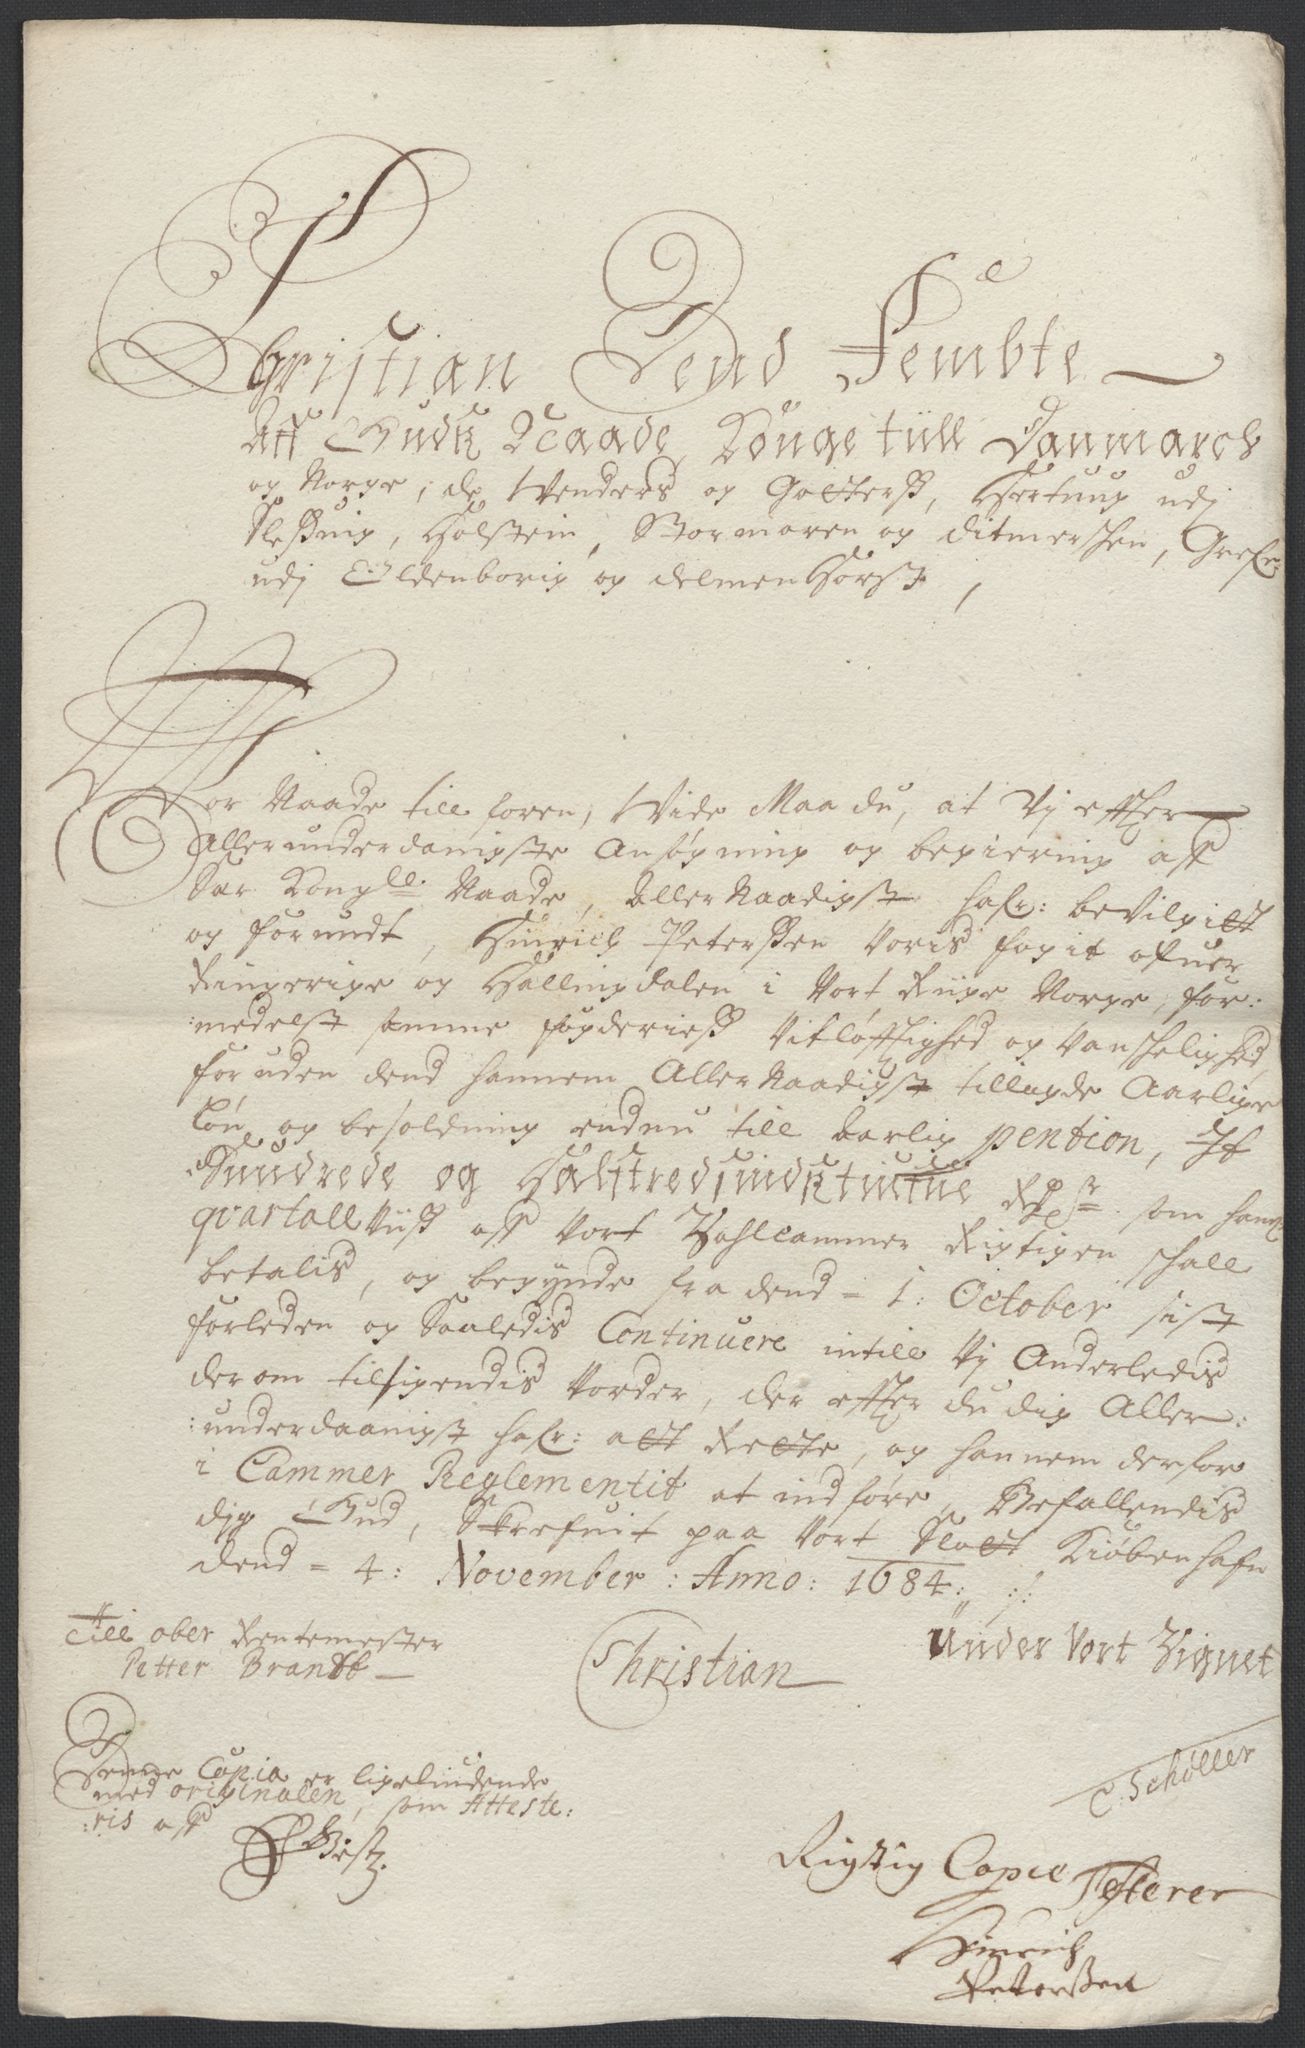 Christian Dend Fembte
Aff Gudß Naade, Konge till Danmarch
og Norge, de Wenders og Gotters, Hertug udj
Sleßvig, Holstein, Stormaren og Ditmerschen, Grefve
udj Oldenborig og Delmenhorst,
Vor Naade till foren, Wide Maa du, at Vj effter
Allerunderdanigste Ansøgning og begiering aff
Sær Konglle. Naade, Aller Naadigst hafr: beVilgitt
og forundt, Hinrich Peterßen Voris fogit ofuer
Ringerige og Hallingdalen i Vort Riige Norge, for:
:medelst samme fogderies Vitløfftighed og Vanschelighed,
foruden dend hannem Aller Naadigst tillagde Aarlige
Løn og besoldning endnu till Aarlig pention, Et
Hundrede og Halftredsindstiuffue Rdr. som hannem
qvartallViis aff Vort Zahlcammer Rigtigen schall
betalis, og begynde fra dend = 1: October sist
forleden og Saaledis Continuere intill Vj Anderledis
derom tilsigendis Vorder, der effter du dig Aller:
:underdaanigst hafr: att Rette, og hannem derfor
i Cammer Reglementit at indføre, Befallendis
dig Gud, Skrefuit paa Vort Slott Kiøbenhafn
dend = 4: November: Anno: 1684:
Till ober Rentemester
Petter Brandt
Christian
Under Vort Zignet
C. Schøller
Denne Copia er ligeliudende
med originalen, som Atteste:
:ris aff
Rigtig Copie Testerer
Hinrich
Peterßen